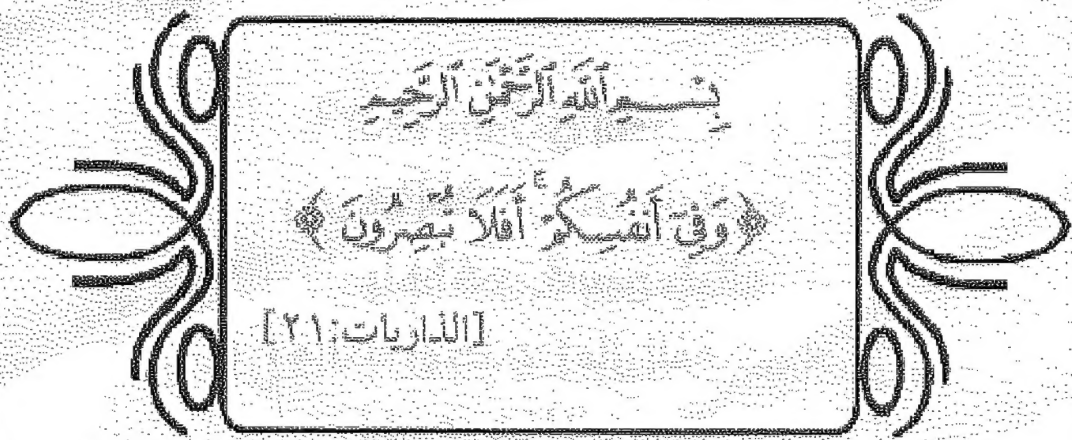 بِسْمِ ٱللَّهِ ٱلرَّحْمَٰنِ ٱلرَّحِيمِ
﴿وَفِيٓ أَنفُسِكُمْ ۚ أَفَلَا تُبْصِرُونَ﴾
[الذاريات:٢١]